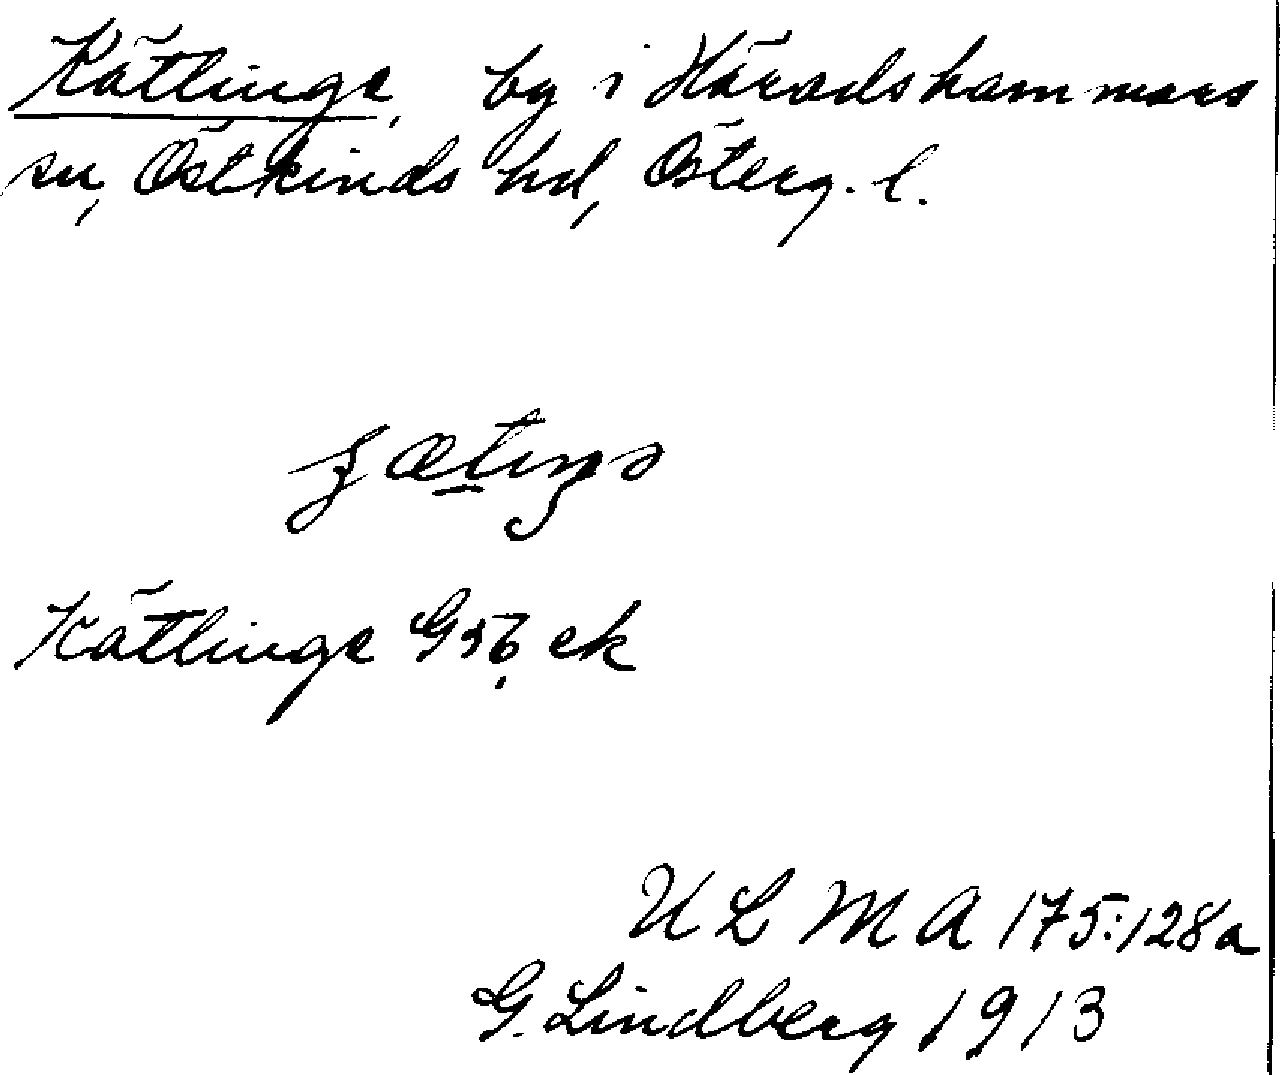 Kätlinge, by i Häradshammars
sn, Östkinds hd, Österg. l.
Kätlinge G 56 ek
U L M A 175:128a
G. Lindberg 1913